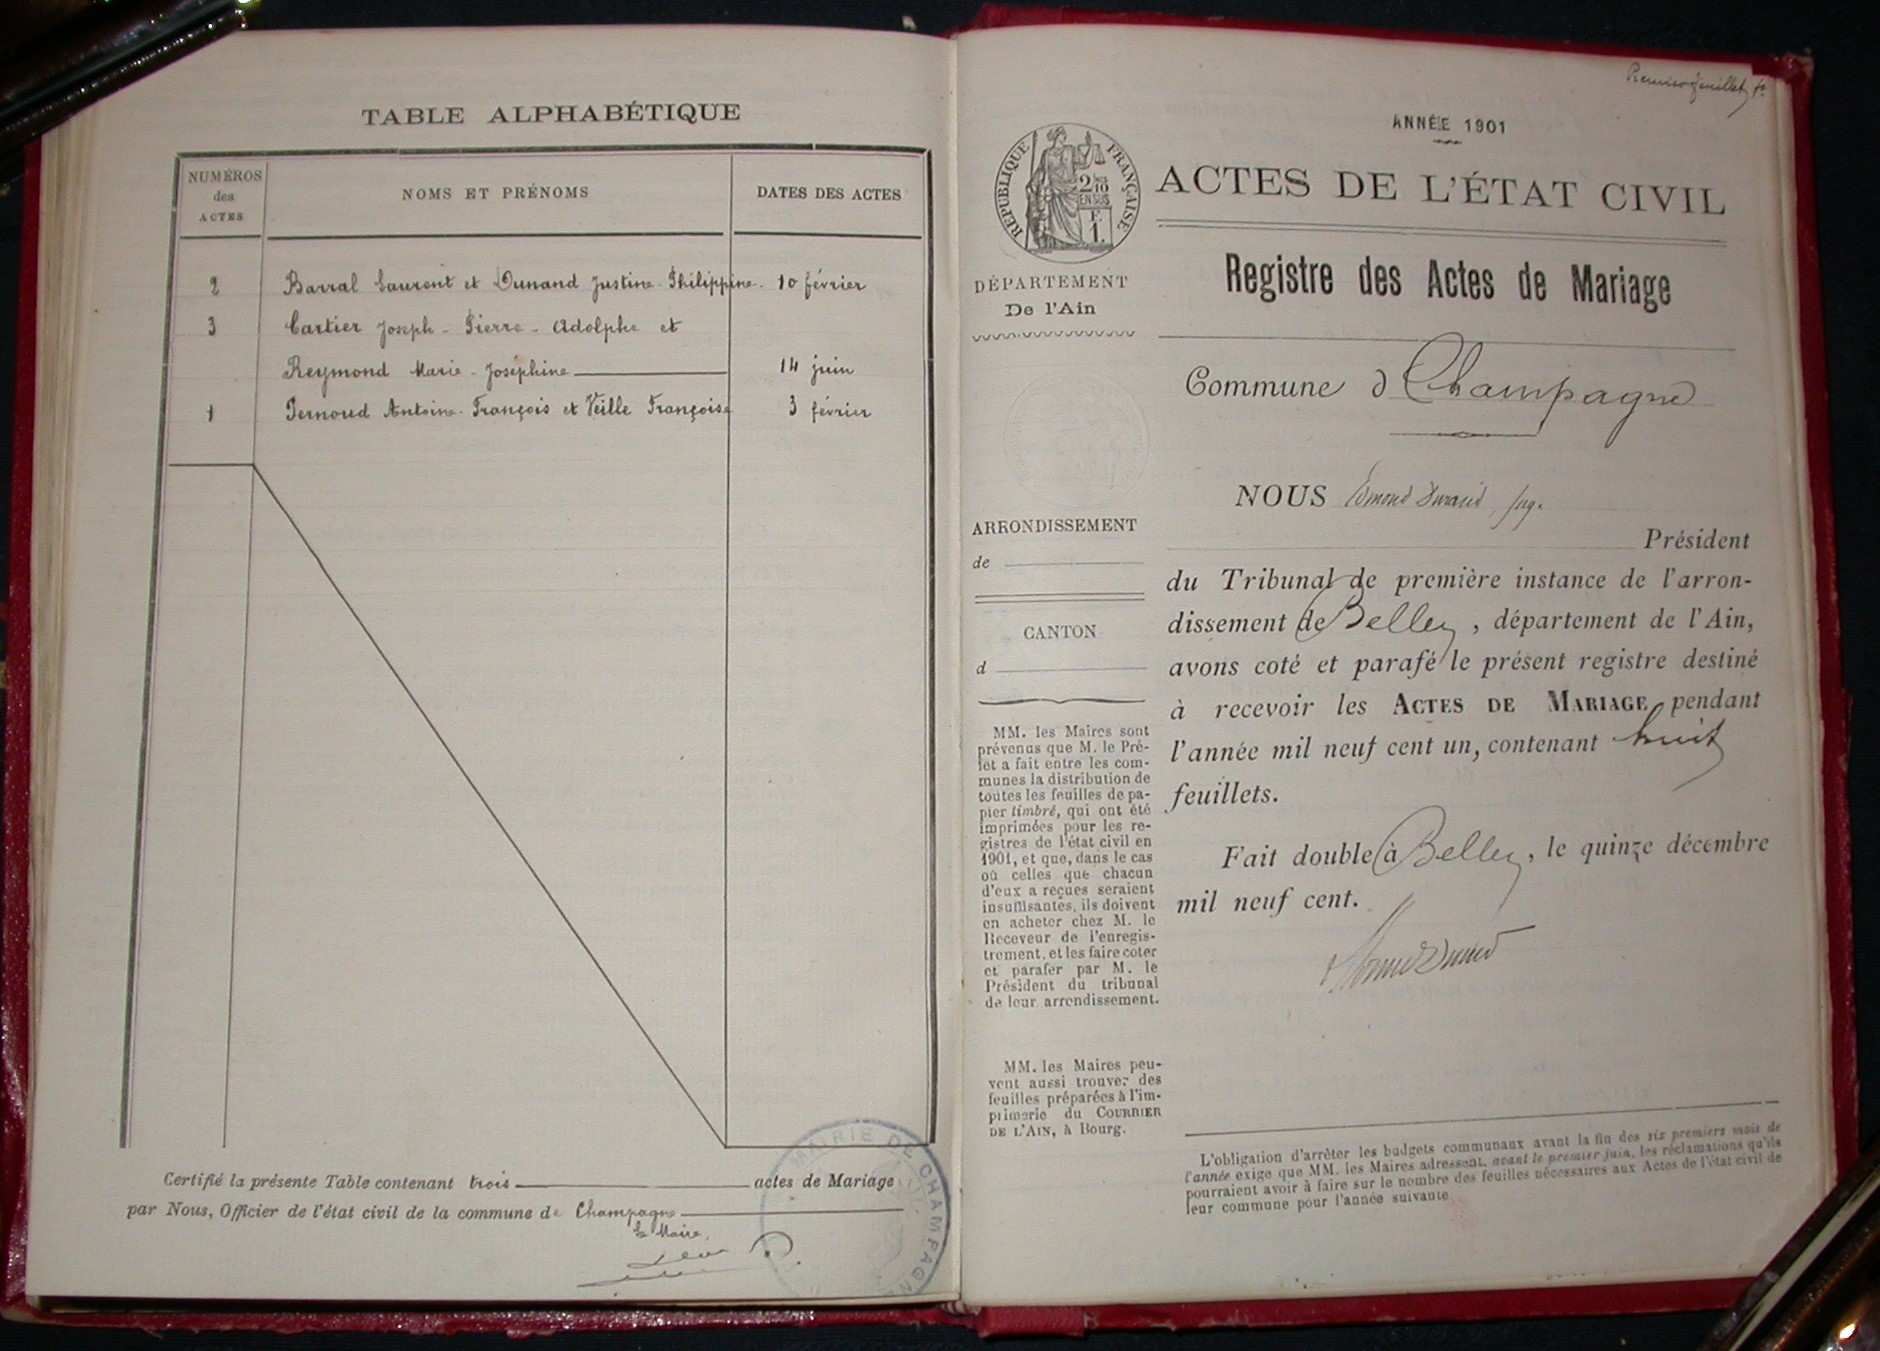 TABLE ALPHABÉTIQUE
NUMÉROS
des
ACTES
NOMS ET PRÉNOMS
DATES DES ACTES
2 Barral Laurent et Dunand Justine-Philippine. 10 février
3 Cartier Joseph-Pierre-Adolphe et
Reymond Marie-Joséphine 14 juin
1 Pernoud Antoine-François et Veille Françoise 3 février
Certifié la présente Table contenant trois actes de Mariage
par Nous, Officier de l'état civil de la commune de Champagne
Le Maire,
MAIRIE DE CHAMPAGNE
Premier feuillet
ANNÉE 1901
RÉPUBLIQUE FRANÇAISE
2/10
EN SUS
F.
1.
ACTES DE L'ÉTAT CIVIL
DÉPARTEMENT
De l'Ain
Registre des Actes de Mariage
Commune d Champagne
ARRONDISSEMENT
de
CANTON
d
MM. les Maires sont
prévenus que M. le Pré-
fet a fait entre les com-
munes la distribution de
toutes les feuilles de pa-
pier timbré, qui ont été
imprimées pour les re-
gistres de l'état civil en
1901, et que, dans le cas
où celles que chacun
d'eux a reçues seraient
insuffisantes, ils doivent
en acheter chez M. le
Receveur de l'enregis-
trement, et les faire coter
et parafer par M. le
Président du tribunal
de leur arrondissement.
MM. les Maires peu-
vent aussi trouver des
feuilles préparées à l'im-
primerie du COURRIER
DE L'AIN, à Bourg.
NOUS Edmond Durand, jug.
Président
du Tribunal de première instance de l'arron-
dissement de Belley, département de l'Ain,
avons coté et parafé le présent registre destiné
à recevoir les ACTES DE MARIAGE pendant
l'année mil neuf cent un, contenant huit
feuillets.
Fait double à Belley, le quinze décembre
mil neuf cent.
L'obligation d'arrêter les budgets communaux avant la fin des six premiers mois de
l'année exige que MM. les Maires adressent, avant le premier juin, les réclamations qu'ils
pourraient avoir à faire sur le nombre des feuilles nécessaires aux Actes de l'état civil de
leur commune pour l'année suivante